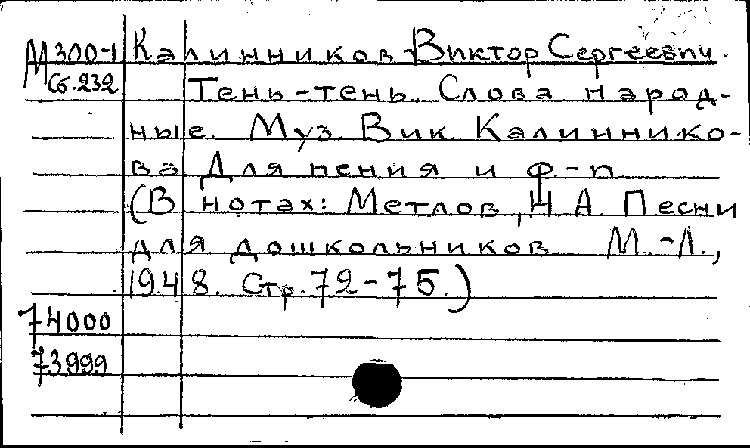 М300-1 Калинников Виктор Сергеевич.
Сб.232 Тень-тень. Слова народ-
ные. Муз. Вик. Калиннико-
ва Для пения и ф.-п
(В нотах: Метлов, Н.А. Песни
для дошкольников М.-Л.,
1948. Стр.72-75.)
74000
73999